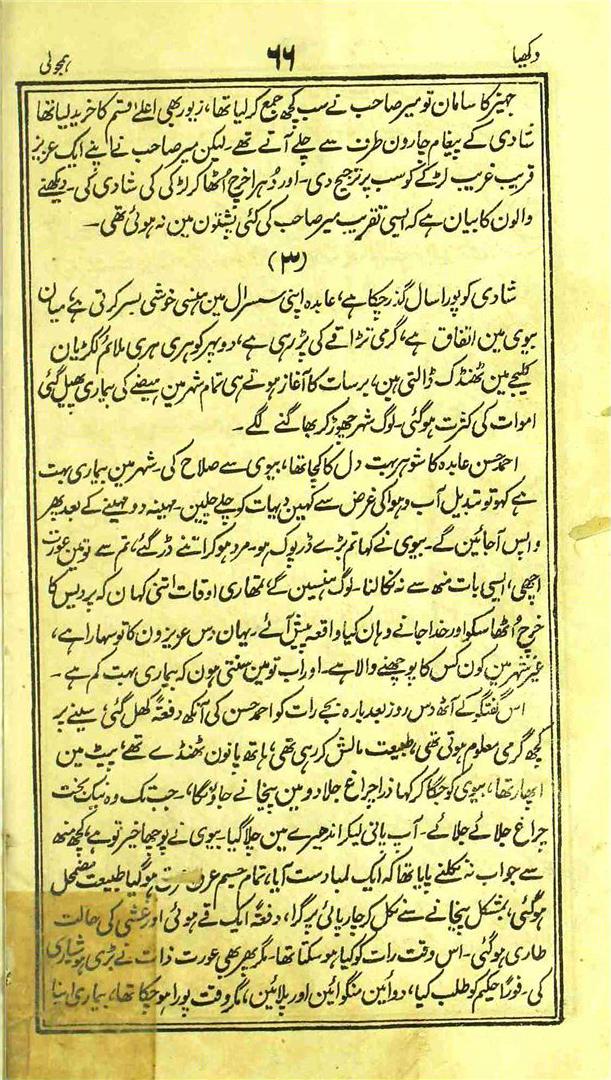 دکھیا ۶۶ ہمجولی
جہیز کا سامان تو میر صاحب نے سب کچھ جمع کر لیا تھا، زیور بھی اعلےٰ قسم کا خرید لیا تھا
شادی کے پیغام چارون طرف سے چلے آتے تھے۔ لیکن میر صاحب نے اپنے ایک عزیز
قریب غریب لڑکے کو سب پر ترجیح دی۔ اور دُہرا خرچ اُٹھا کر لڑکی کی شادی کی۔ دیکھنے
والون کا بیان ہے کہ ایسی تقریب میر صاحب کی کئی پشتون مین نہ ہوئی تھی۔
(۳)
شادی کو پورا سال گذر چکا ہے، عابدہ اپنی سسرال مین ہنسی خوشی بسر کرتی ہے، میان
بیوی مین اتفاق ہے، گرمی تڑاقے کی پڑ رہی ہے، دوپہر کو ہری ہری ملائم ککڑیان
کلیجے مین ٹھنڈک ڈالتی ہین، برسات کا آغاز ہوتے ہی تمام شہر مین ہیضے کی بیماری پھیل گئی
اموات کی کثرت ہوگئی۔ لوگ شہر چھوڑ کر بھاگنے لگے۔
احمد حسن عابدہ کا شوہر بہت دل کا کچا تھا، بیوی سے صلاح کی۔ شہر مین بیماری بہت
ہے کہو تو تبدیل آب و ہوا کی غرض سے کہین دیہات کو چلے چلین۔ مہینہ دو مہینے کے بعد پھر
واپس آجائین گے۔ بیوی نے کہا تم بڑے ڈرپوک ہو۔ مرد ہو کر اتنے ڈر گئے، تم سے تو مین عورت
اچھی، ایسی بات منھ سے نہ نکالنا۔ لوگ ہنسین گے، تمھاری اوقات اتنی کہان کہ پردیس کا
خرچ اُٹھا سکو اور خدا جانے وہان کیا واقعہ پیش آئے۔ یہان دس عزیزون کا تو سہارا ہے،
غیر شہر مین کون کس کا پوچھنے والا ہے۔ اور اب تو مین سنتی ہون کہ بیماری بہت کم ہے۔
اس گفتگو کے آٹھ دس روز بعد بارہ بجے رات کو احمد حسن کی آنکھ دفعۃً کھل گئی، سینے پر
کچھ گرمی معلوم ہوتی تھی، طبیعت مالش کر رہی تھی، ہاتھ پانون ٹھنڈے تھے، پیٹ مین
اپھار تھا، بیوی کو جگا کر کہا ذرا چراغ جلا دو مین پیخانے جاؤنگا۔ جب تک وہ نیک بخت
چراغ جلائے جلائے۔ آپ پانی لیکر اندھیرے مین چلا گیا۔ بیوی نے پوچھا خیر تو ہے، کچھ منھ
سے جواب نہ نکلنے پایا تھا کہ ایک لمبا دست آیا، تمام جسم عرق ہوگیا طبیعت مضمحل
ہوگئی، بمشکل پیخانے سے نکل کر چارپائی پر گرا، دفعۃً ایک قے ہوئی اور غشی کی حالت
طاری ہوگئی۔ اس وقت رات کو کیا ہو سکتا تھا۔ مگر پھر بھی عورت ذات نے بڑی ہوشیاری
کی۔ فوراً حکیم کو طلب کیا، دوائین منگوائین اور پلائین، مگر وقت پورا ہو چکا تھا، بیماری اپنا